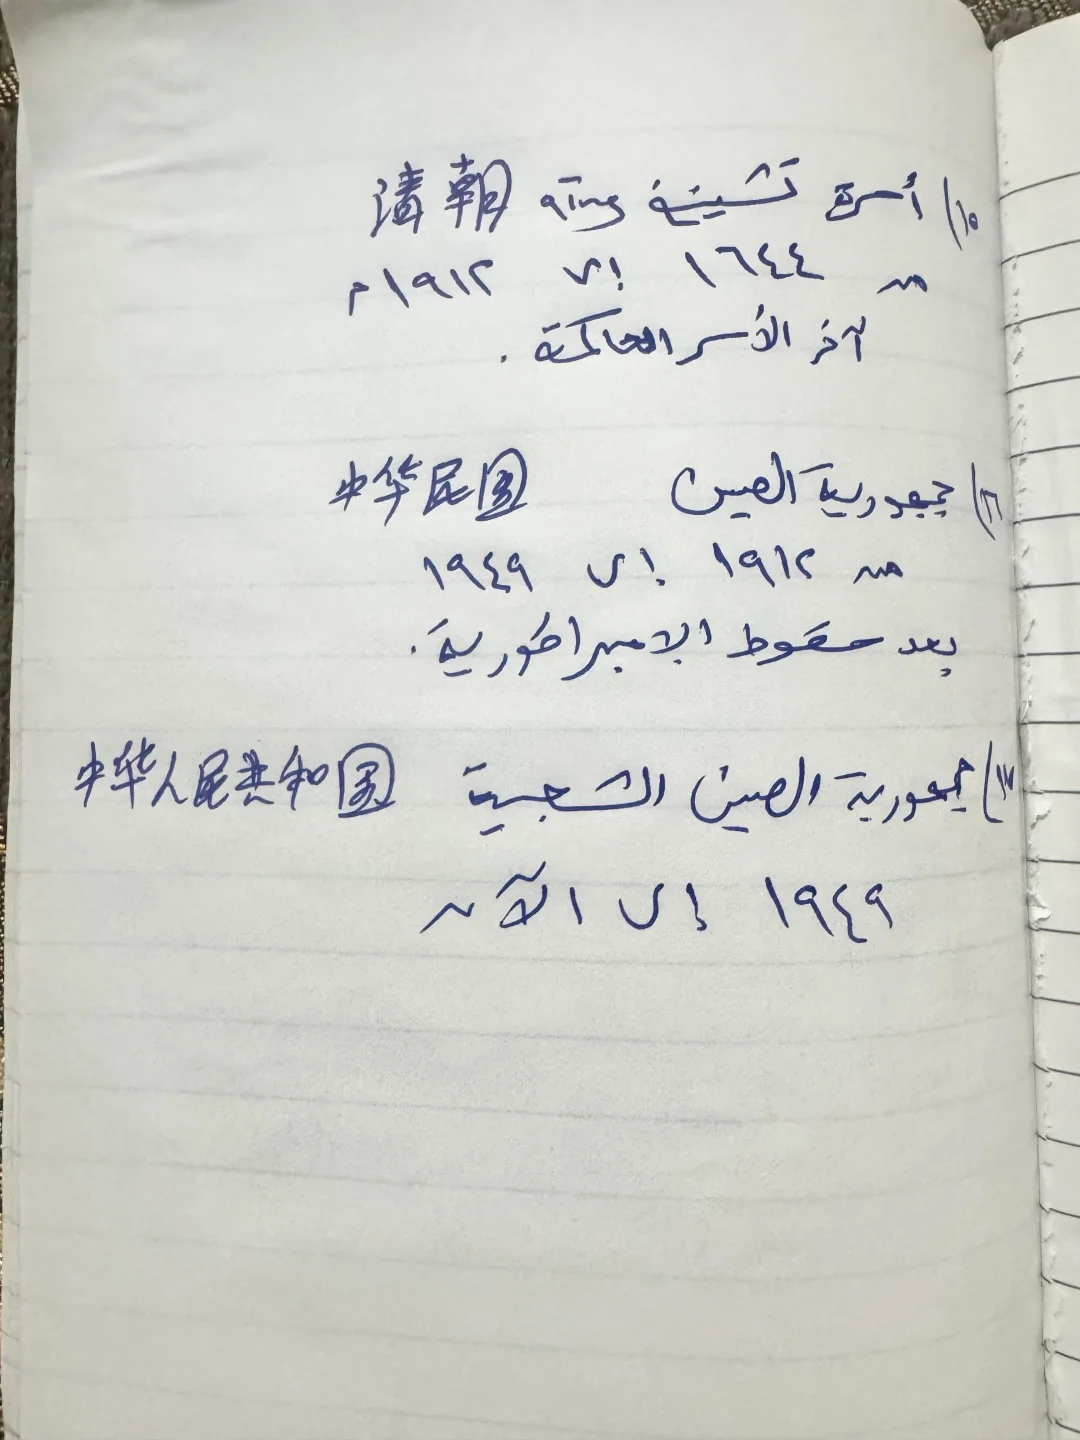 ١٥) أسرة تشينغ qīng 清朝
من ١٦٤٤ إلى ١٩١٢م
آخر الأسر الحاكمة.
١٦) جمهورية الصين 中华民国
من ١٩١٢ إلى ١٩٤٩
بعد سقوط الامبراطورية.
١٧) جمهورية الصين الشعبية 中华人民共和国
١٩٤٩ إلى الآن